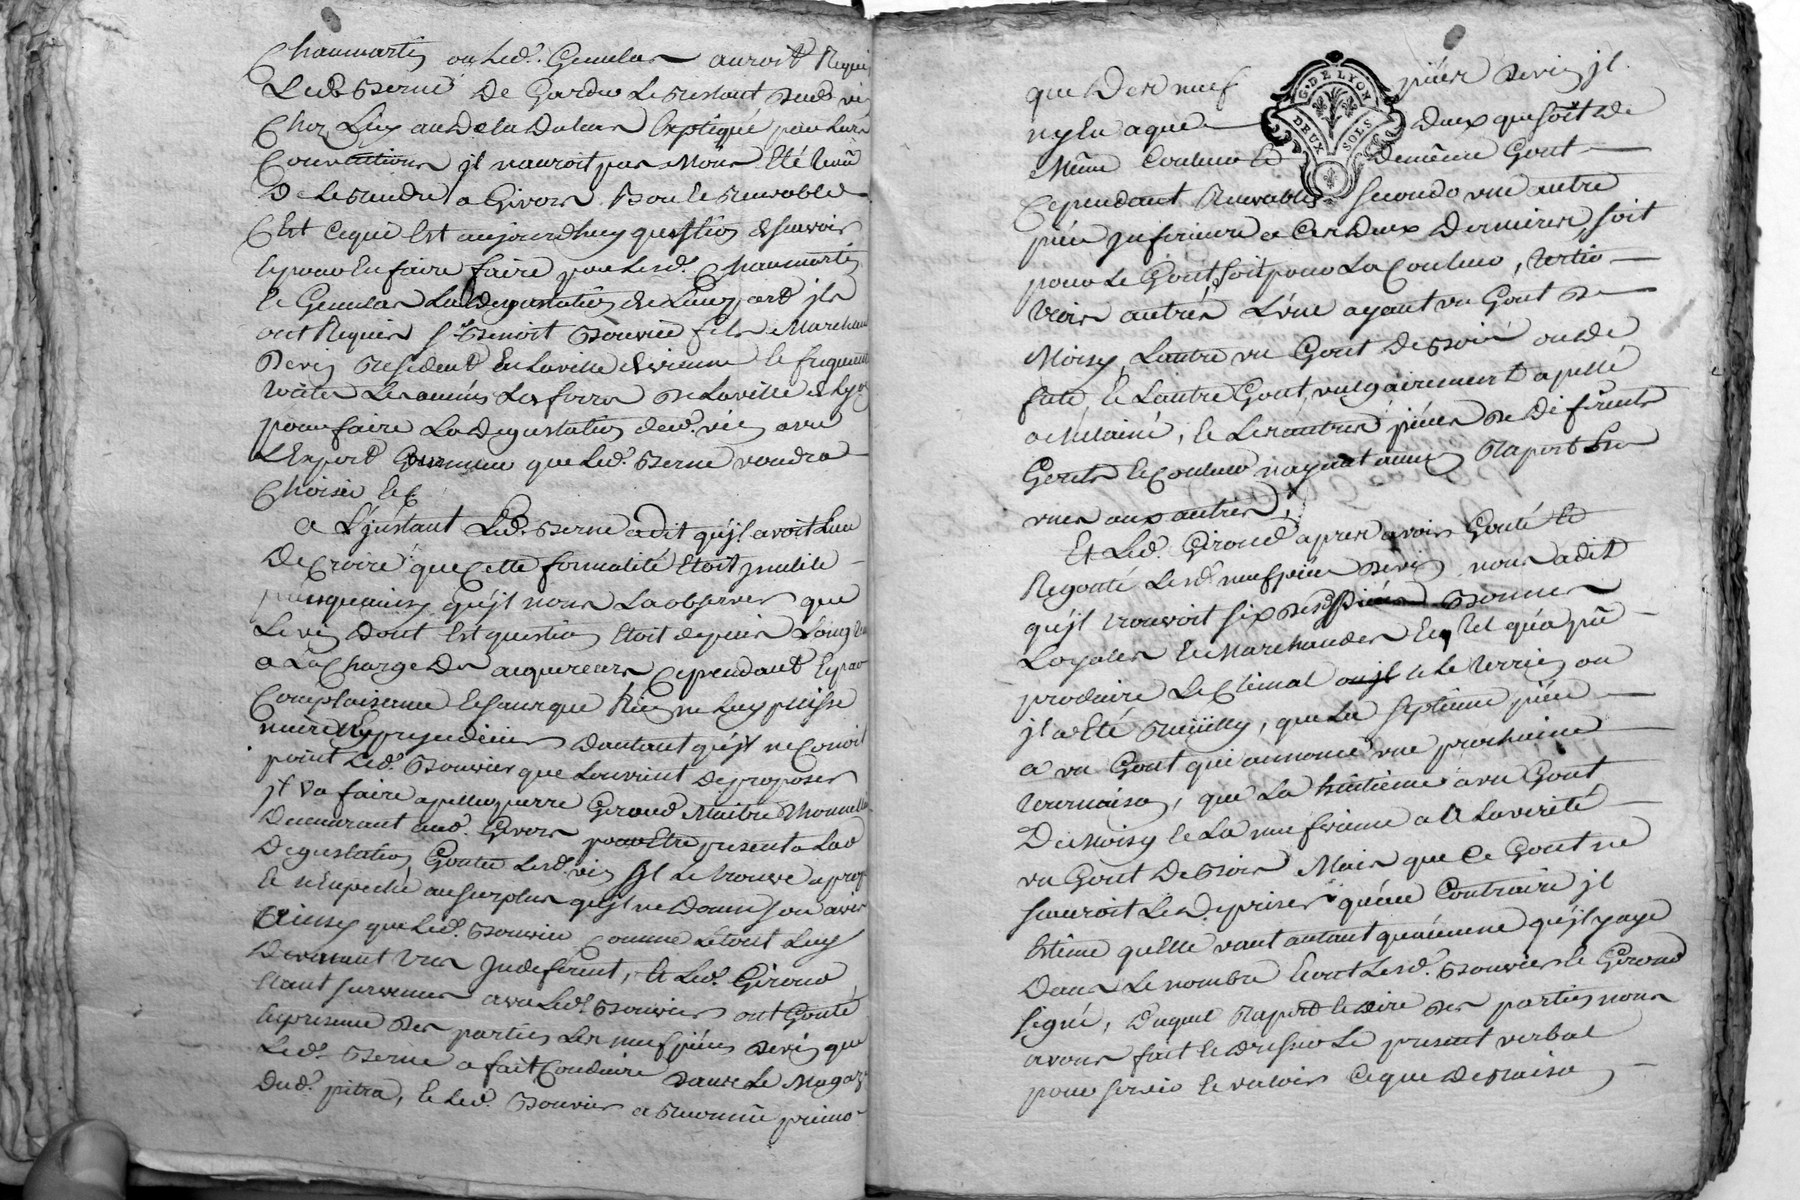 Chaumartin ou Led. Genelas auroit Requis
Led. Berne De Garder Le restant Dud. vin
Chez Luy audela Dutems Expliqué par Leurs
Conventions jl nauroit pas Moins Eté tenû
De Le rendre a Givors Bon et recevable
C'Est Ceque Est aujourdhuy question de sçavoir
et pour En faire faire par Lesd. Chaumartin
et Genelas La Degustation de Leur part jls
ont Requis Sr. Benoit Bouvier fils Marchand
De vin resident En Laville de vienne et frequentant
toutes Les années Les foires De Laville de Lyon
pour faire La Degustation dud. vin avec
L'Expert que Led. Berne voudra
Choisir Etc
a L'jnstant Led. Berne adit qu'jl avoit Lieu
De Croire que Cette formalité Etoit jnutile
puisqu'ainsy qu'jl nous La observé que
Le vin Dont Est question Etoit depuis Long tems
a La Charge Des acquereurs Cependant Et par
Complaisance Et sans que Rien ne Luy puisse
nuire Ny prejudicier Dautant qu'jl ne Conoit
point Led. Bouvier que Lon vient De proposer
jl Va faire apeller pierre Giroud Maitre Thonnellier
Demeurant aud. Givors pour Etre present a Lad.
Degustation Gouter Lesd. vin Sjl Se trouve a propos
Et n'Empeche ausurplus qu'jl ne Donne son avis
ainsy que Led. Bouvier Comme Letout Luy
Devenant tres jndiferent, Et Led. Giroud
Etant survenus avec Led. Bouvier ont Gouté
En presence Des parties Les neuf pièces De vin que
Led. Berne a fait Conduire Dans Le Magazin
Dud. pitra, et Led. Bouvier a reconnû primo
que Des neuf pièces De vin jl
ny En a que Deux qui soit De
Même Couleur Et De même Gout
Cependant recevables Secondo une autre
pièce jnferieure a Ces Deux Dernieres soit
pour Le Gout, soit pour La Couleur, tertio
trois autres L'une ayant un Gout De
Moisy, Lautre un Gout De Bois ou De
futé et Lautre Gout vulgairement apellé
, et Les autres pièces De Diferents
Gouts et Couleur nayant aucun Raport Les
unes aux autres,
Et Led. Giroud apres avoir Gouté Et
Regouté Lesd. neuf pièces De vin nous a dit
qu'jl trouvoit six Desd. pièces Bonnes
Loyales Et Marchandes En tel qu'a pû
produire Le Climat ou jl Et Le terrein ou
jl a Eté Cuëilly, que La septieme pièce
a un Gout qui annonce une prochaine
tournaison, que La huitieme a un Gout
De Moisy et La neufvieme a A La verité
un Gout De Bois Mais que Ce Gout ne
sçauroit Le Depriser qu'au Contraire jl
Estime quelle vaut autant qu'aucune qu'jl y aye
Dans Le nombre Et ont Lesd. Bouvier et Giroud
signé, Duquel Raport et dire Des parties nous
avons fait et Dressé Le present verbal
pour servir et valoir Ceque De Raison
G. DE LYON
DEUX SOLS